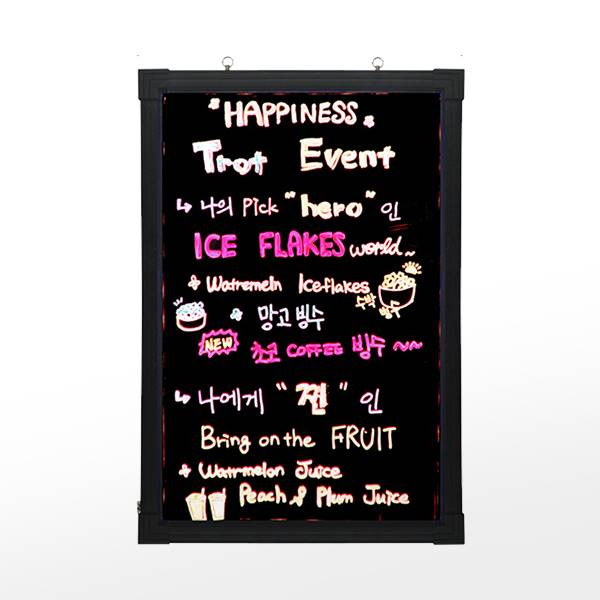 HAPPINESS
Trot Event
나의 Pick "hero" 인
ICE FLAKES world~
Watremeln Iceflakes
수박 빙수
망고빙수
NEW 초코 COFFEE 빙수 ~~
나에게 "찐" 인
Bring on the FRUIT
Watrmelon Juice
Peach & Plum Juice